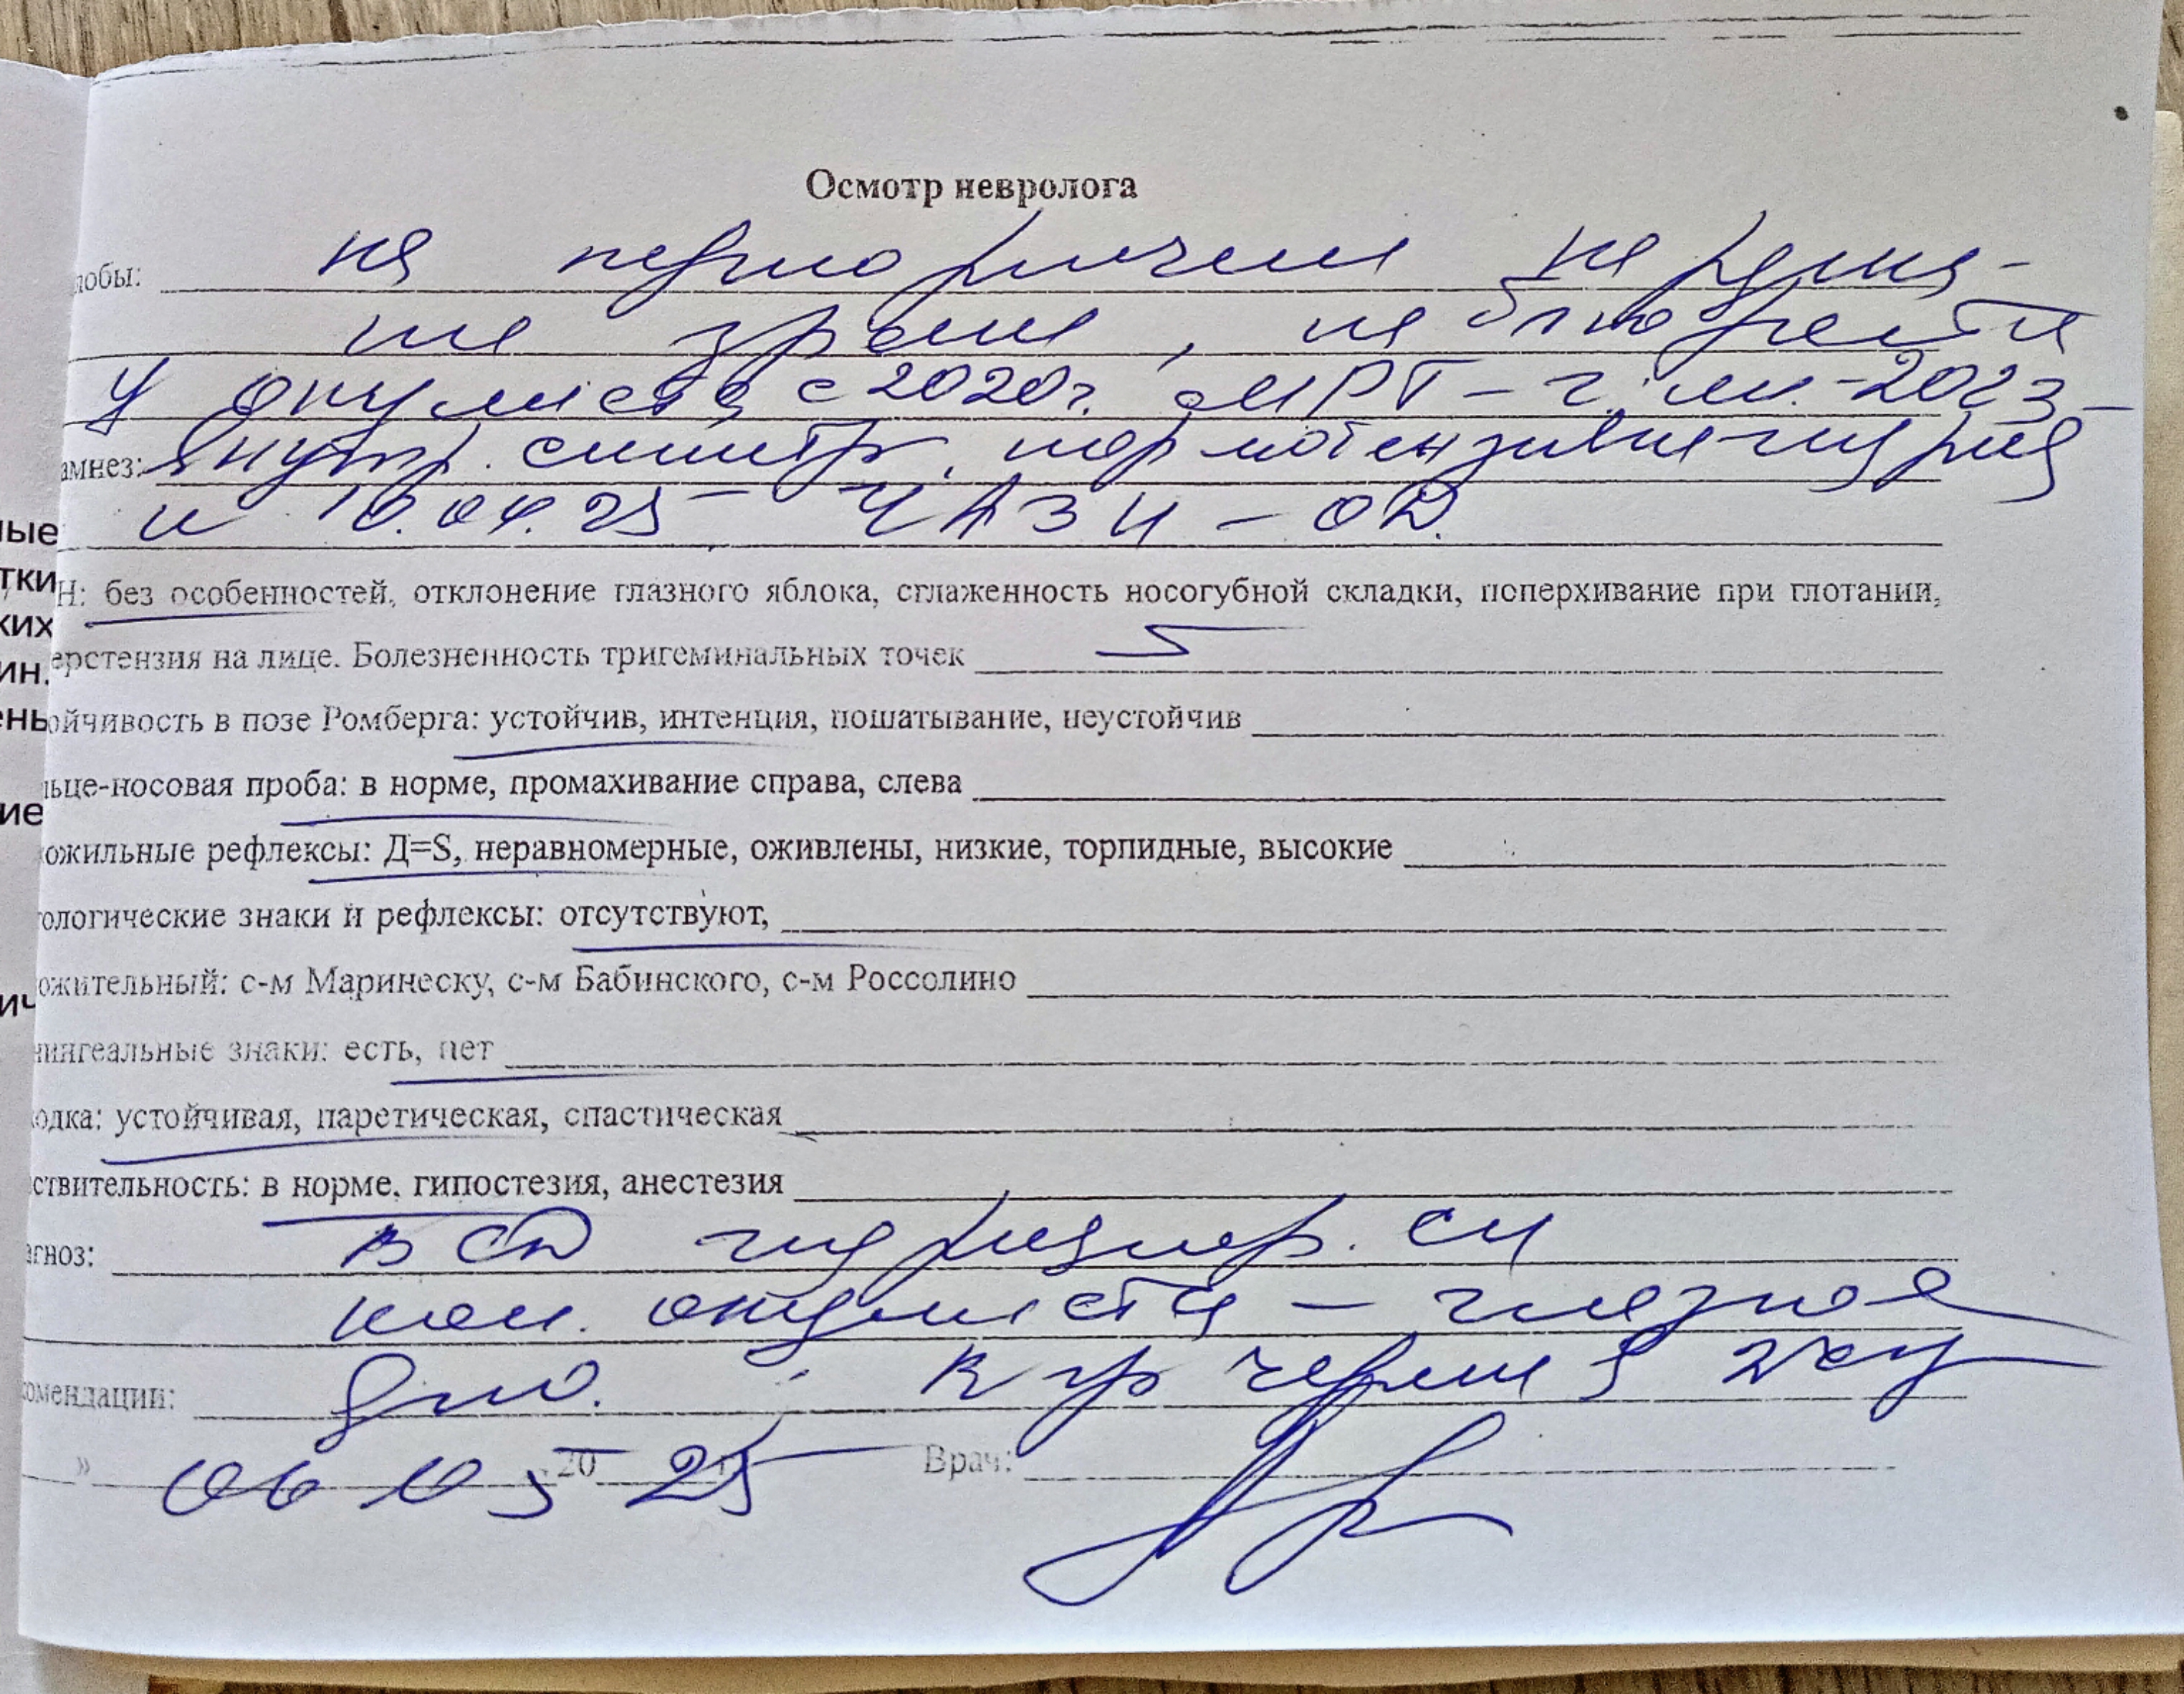 Осмотр невролога
лобы: на периодические на
зрение, наблюдается
У окулиста с 2020г. МРТ – г. м. – 2023 –
амнез: внутр. симптр.
и 10.04.25 – ЧАЗН – ОД.
ные
тки
Н: без особенностей, отклонение глазного яблока, сглаженность носогубной складки, поперхивание при глотании,
ких
ерстензия на лице. Болезненность тригеминальных точек
ин.
ень
ойчивость в позе Ромберга: устойчив, интенция, пошатывание, неустойчив
льце-носовая проба: в норме, промахивание справа, слева
ие
ожильные рефлексы: Д=S, неравномерные, оживлены, низкие, торпидные, высокие
ологические знаки и рефлексы: отсутствуют,
ожительный: с-м Маринеску, с-м Бабинского, с-м Россолино
ич
нингеальные знаки: есть, нет
одка: устойчивая, паретическая, спастическая
ствительность: в норме, гипостезия, анестезия
агноз: ВСД
кон. окулиста – глазное
комендации: дно.
» 06 05 20 25 Врач: